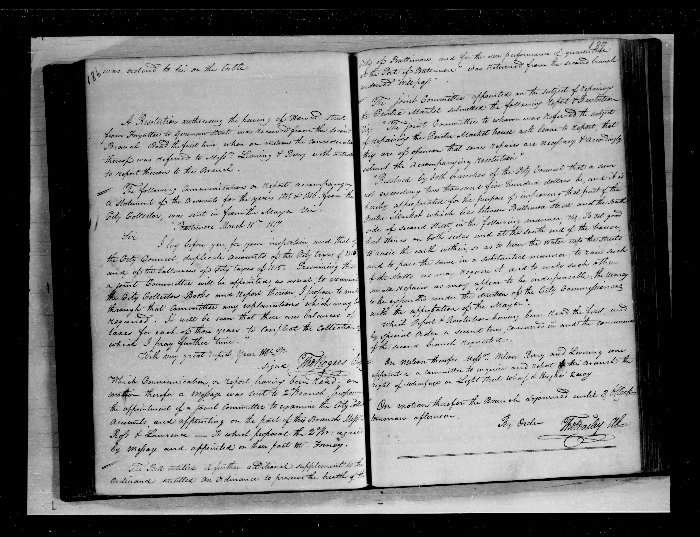 186
was ordered to lie on the table
A Resolution authorising the paving of Howard Street
from Fayette to German Street, was received from the second
Branch Read the first time, when on motion the consideration
thereof was referred to Messrs. and Berry with instructions
to report thereon to this Branch.
The following Communication or report accompanying
a Statement of the Accounts for the years 1815 & 1816, from the
City Collector, was sent in from the Mayor Viz.
Baltimore March 11th 1817
Sir
I lay before you for your inspection and that of
the City Council, duplicate accounts of the City taxes of 1816
and of the balances of City taxes of 1815. Presuming that
a joint Committee will be appointed as usual to examine
the City Collectors Books and report thereon I propose to make
through that Committee any explanations which may be
required. It will be seen that there are balances of
taxes for each of those years to complete the collection of
which I pray further time.
With very great respect your Obt. St.
signd. Tho Rogers City
Which Communication, or report having been read, on
motion therefor a message was sent to 2nd Branch proposing
the appointment of a joint Committee to examine the City
accounts, and appointing on the part of this Branch Messrs.
Ross & Lawrence — To which proposal the 2nd Br. agreed
by message and appointed on their part Mr. Forney.
The Bill entitled A further additional supplement to the
Ordinance entitled An Ordinance to preserve the health of the
187
City of Baltimore and for the due performance of quarantine
at the Port of Baltimore was returned from the second branch
endorsed "will pass"
The Joint Committee appointed on the subject of repairing
the Centre Market submitted the following Report & Resolution
Viz. "The Joint Committee to whom was referred the subject
of repairing the Centre Market house ask leave to report, that
they are of opinion that some repairs are necessary & accordingly
submit the accompanying resolution"
"Resolved by both branches of the City Council that a sum
not exceeding two thousand five hundred dollars be, and it is
hereby appropriated for the purpose of improving that part of the
Centre Market which lies between Baltimore Street and the South
side of second Street, in the following manner viz. To set good
kerb stones on both sides and at the south end of the house,
to raise the earth within so as to turn the water into the streets
and to pave the same in a substantial manner to raise such
of the stalls as may require it and to make such other
small repairs as may appear to be indispensable, the money
to be expended under the direction of the City Commissioners
with the approbation of the Mayor."
Which Report & Resolution having been read the first and
by Special Order a second time, concurred in and the concurrence
of the second branch requested.
On motion therefor Messrs. Wilson, Berry and were
appointed a committee to inquire and report to this Branch, the
right of wharfage on Light Street wharf & Hughes' quay
On motion therefor the Branch adjourned until 3 o'Clock
tomorrow afternoon.
By Order
Tho Brady Clk.